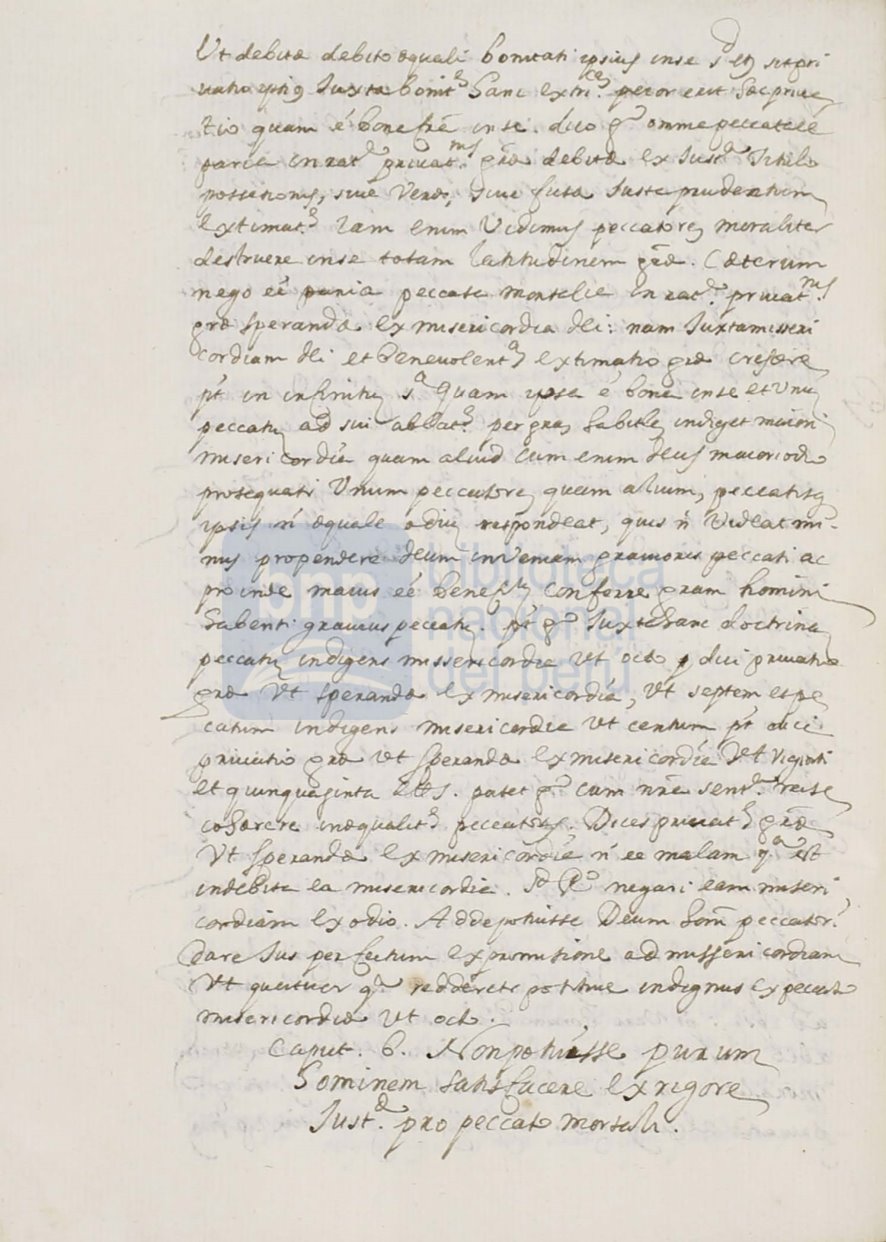 Ut debitæ debito æquali bonitati ipsius in se sed et sit pri
vatio iuxta bonit.^s hanc extri.^ce peior erit hæc priva
tio quam é bone in se. dico g.^o omne peccat eé
paria in rat.^e privat.^nis grǣ debitæ ex Just.^æ titulo
positionis, sive veræ, sive fictæ iuxta prudentium
extimat.^e iam enim vidimus peccatorẽ moraliter
destruere in se totam latitudinem grǣ. Cæterum
nego eé paria peccata mortalie in rat.^e privat.^nis
græ sperandæ ex misericordia dei: nam Juxta misseri
cordiam dei et benevolent.^ extimatio græ crescere
pt in infinitũ quam ipsa é bone in se et unũ
peccatũ ad sui ablat.^e per gram habitle indiget maiori
misericordie quam aliud cum enim deus maiori odio
prosequatr unum peccatorẽ quam alium, peccatisq
ipsis ñ æquale odiũ respondeat, quis ñ videat mi-
nus propendere deum in veniam gravioris peccati ac
proinde maius eé benef.^m conferre gram homini
habenti gravius peccatũ. pt g.^o Juxta hanc doctrinã
peccatũ indigens missericordie ut octo dici privatio
græ ut sperandæ ex misericordia, ut septem et pec
catum indigens misericordie ut centum pt dici
privatio græ ut sperandæ ex misericordie ut viginti
et quinquaginta patet g.^o cum nra sent.^a recte
cohærere inæqualit.^s peccatorũ. Dices privat.^ grǣ
ut sperandæ ex misericordie ñ eé malam q.^a est
indebita ea misericordie. Sd R.^o negari eam miseri
cordiam ex odio. Adde potuisse Deum hom peccator.^i
dare Jus perfectum ex promissione ad missericordiam
ut quatuor q.^ redderetr postmue indignus ex peccato
misericordiæ ut octo.
Caput. 6. Non potuisse purum
hominem satisfacere ex rigore
Just.^æ pro peccato mortali.
bnp biblioteca
nacional
del perú